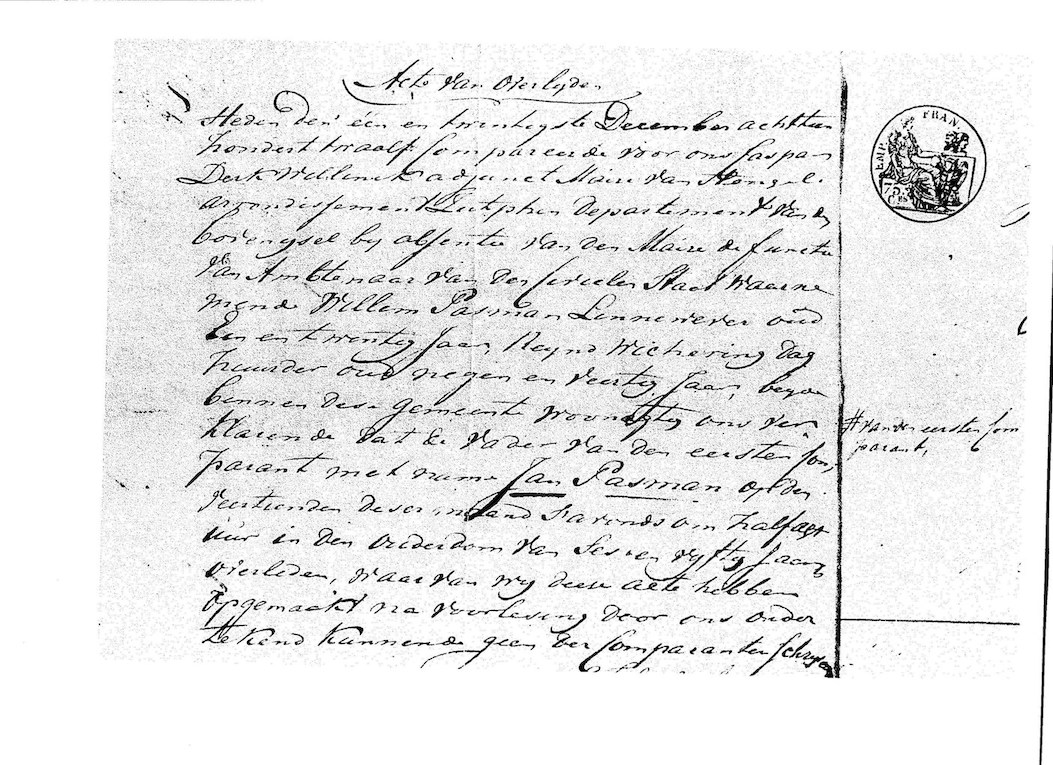 Acte van Overlyden
Heden den één en twintigste December achttien
hondert twaalf Compareerde voor ons Caspar
Derk Willinck adjunct Maire van Hengelo
arrondissement Zutphen Departement van den
bovenyssel by absentie van den Maire de functie
van Ambtenaar van den Civielen Staat waarne
mende Willem Pasman Linnewever oud
Een en twintig Jaar, Reynd Wichering Dag
huurder oud negen en veertig Jaar, beyde
binnen dese gemeente woonagtig ons ver
klarende dat de vader van den eersten Com,
parant met name Jan Pasman op den
veertienden deser maand s'avonds om half agt
uur in den ouderdom van Ses en vyftig Jaaren
overleden, waarvan wy deese acte hebben
opgemaakt na voorlesing door ons onder
tekend kunnende geen der Comparanten schryven
# van den eersten Com
parant,
EMP. FRAN.
75
Ces